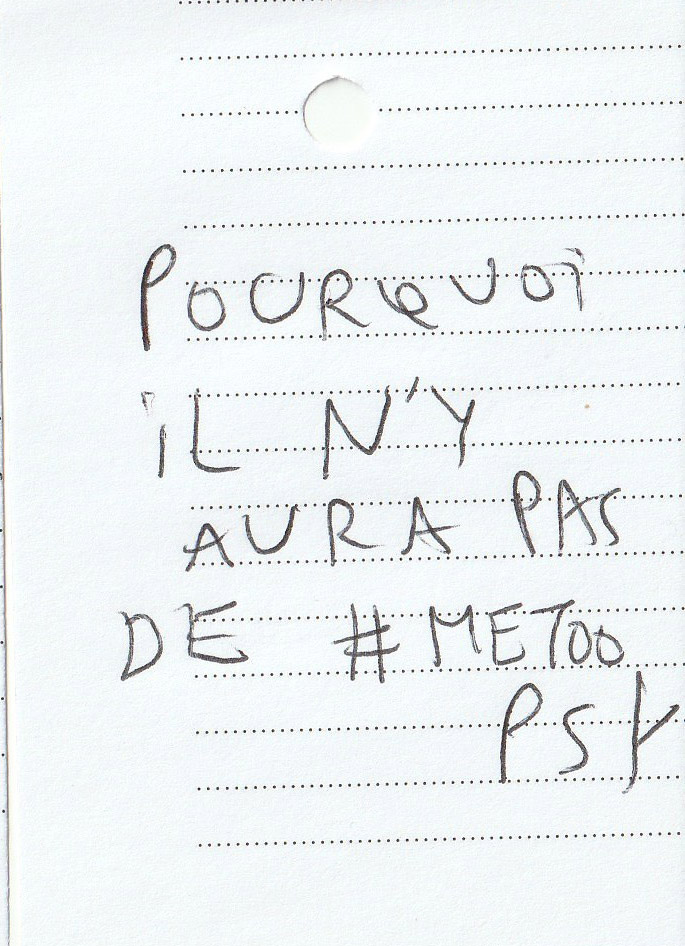 POURQUOI
iL N'Y
AURA PAS
DE #METOO
PSY